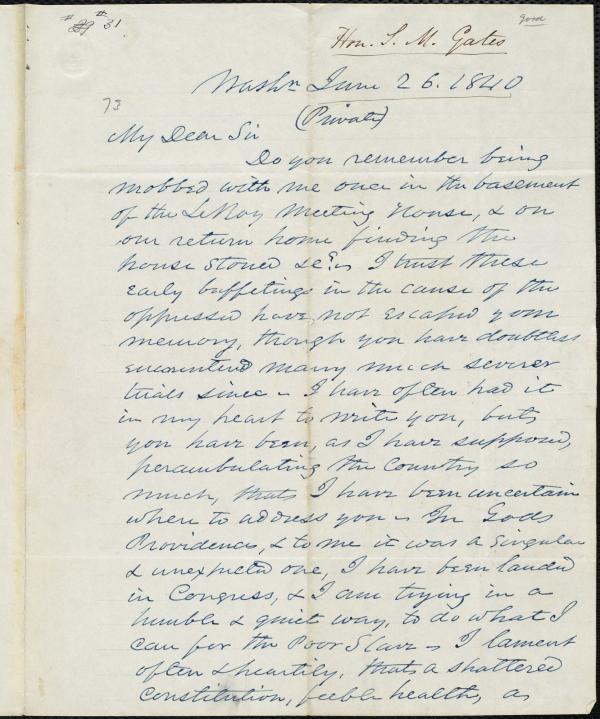 # 29 # 31.
Hon. S. M. Gates
Washn June 26. 1840
73
(Private)
My Dear Sir
Do you remember being
mobbed with me once in the basement
of the LeRoy Meeting House, & on
our return home finding the
house stoned &c? – I trust these
early buffetings in the cause of the
oppressed have not escaped your
memory, though you have doubtless
encountered many much severer
trials since – I have often had it
in my heart to write you, but
you have been, as I have supposed,
perambulating the Country so
much, that I have been uncertain
where to address you – In Gods
Providence, & to me it was a singular
& unexpected one, I have been landed
in Congress, & I am trying in a
humble & quiet way, to do what I
can for the Poor Slave – I lament
often & heartily, that a shattered
Constitution, feeble health, as